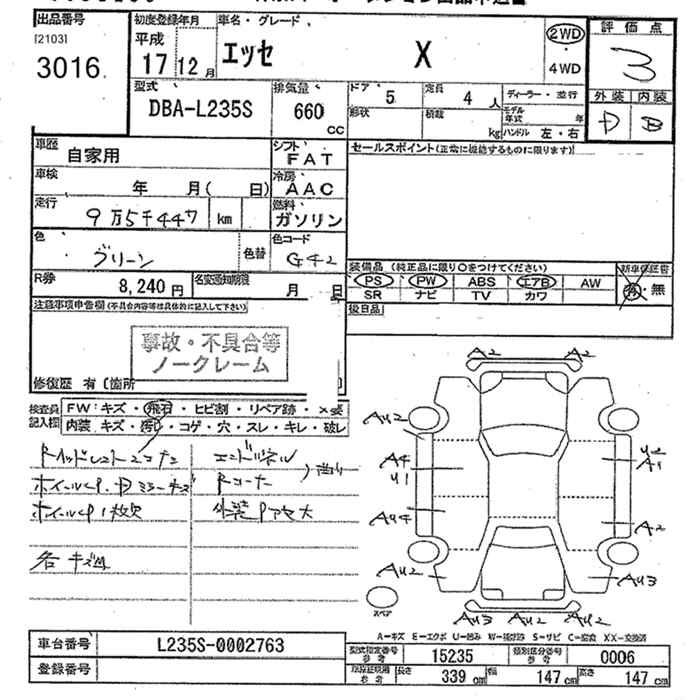 出品番号
[2103]
3016
初度登録年月
平成
17 12月
車名・グレード
エッセ X
2WD
・4WD
評価点
3
外装 内装
D B
型式
DBA-L235S
排気量
660
cc
ドア
5
定員
4人
形状
積載
kg
ディーラー・並行
モデル年式 年
ハンドル 左・右
車歴
自家用
シフト
FAT
セールスポイント(正常に機能するものに限ります)
車検
年 月( 日)
冷房
AAC
走行
9万5千447 km
燃料
ガソリン
色
グリーン
色替
色コード
G42
装備品 (純正品に限り○をつけてください)
PS PW ABS エアB AW
SR ナビ TV カワ
新車保証書
有・無
R券
8,240円
名変通知期限
月 日
注意事項申告欄(不具合内容等は具体的に記入して下さい)
後日品
事故・不具合等
ノークレーム
修復歴 有〔箇所
検査員
記入欄
FW:キズ・飛石・ヒビ割・リペア跡・×要
内装 キズ・汚レ・コゲ・穴・スレ・キレ・破レ
ホイールCP.Dミラーキズ
Rコーナー
ホイールCP1枚欠
各キズ凹
A2 A2
AU2
A4
U1
U2
A1
AU4
A2
AU2
AU3
AU3 AU2 AU2
スペア
A-キズ E-エクボ U-凹み W-補修跡 S-サビ C-腐食 XX-交換済
車台番号
L235S-0002763
登録番号
型式指定番号
参考
15235
類別区分番号
参考
0006
参考
長さ
339 cm
幅
147 cm
高さ
147 cm